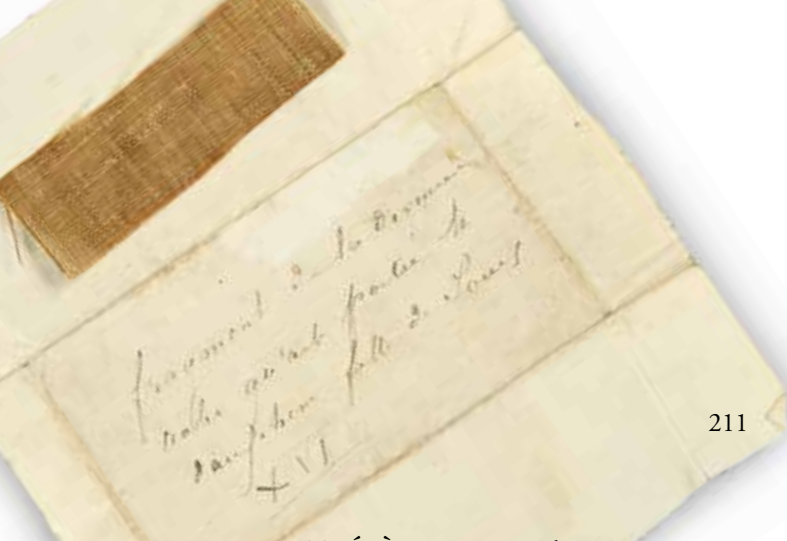 fragment de la dernière
robe qu'ait portée le
dauphin fils de Louis
XVI
211